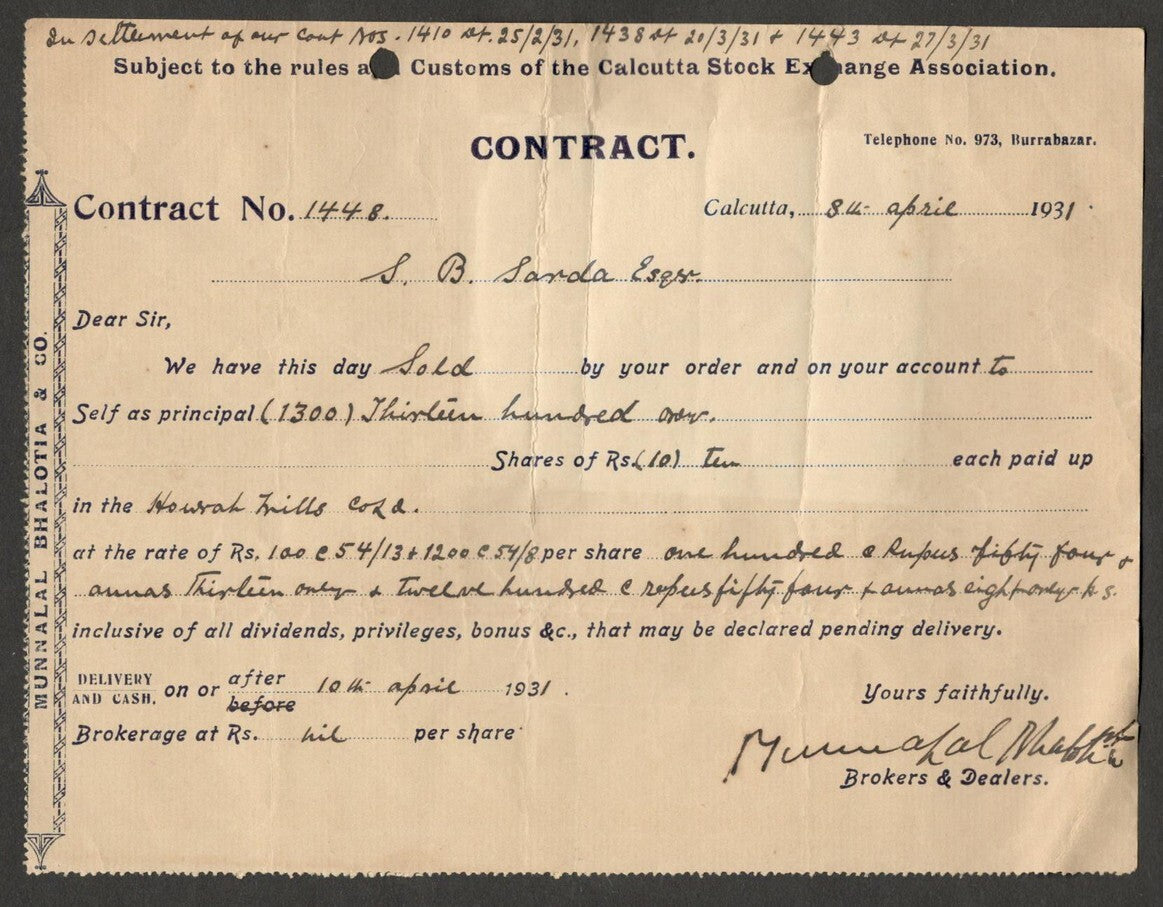 In settlement of our cont Nos. 1410 dt. 25/2/31, 1438 dt 20/3/31 & 1443 dt 27/3/31
Subject to the rules a Customs of the Calcutta Stock Ex ange Association.
CONTRACT.
Telephone No. 973, Burrabazar.
Contract No. 1448.
Calcutta, 8th april 1931
S. B. Sarda Esqr.
Dear Sir,
We have this day Sold by your order and on your account to
Self as principal (1300) Thirteen hundred only.
Shares of Rs. (10) ten each paid up
in the Howrah Mills Co Ld.
at the rate of Rs. 100 @ 54/13 & 1200 @ 54/8 per share one hundred @ Rupees fifty four &
annas Thirteen only & twelve hundred @ rupees fifty four & annas eight only
inclusive of all dividends, privileges, bonus &c., that may be declared pending delivery.
DELIVERY AND CASH, on or after before 10th april 1931.
Yours faithfully.
Brokerage at Rs. nil per share
Munnalal Bhalotia
Brokers & Dealers.
MUNNALAL BHALOTIA & CO.